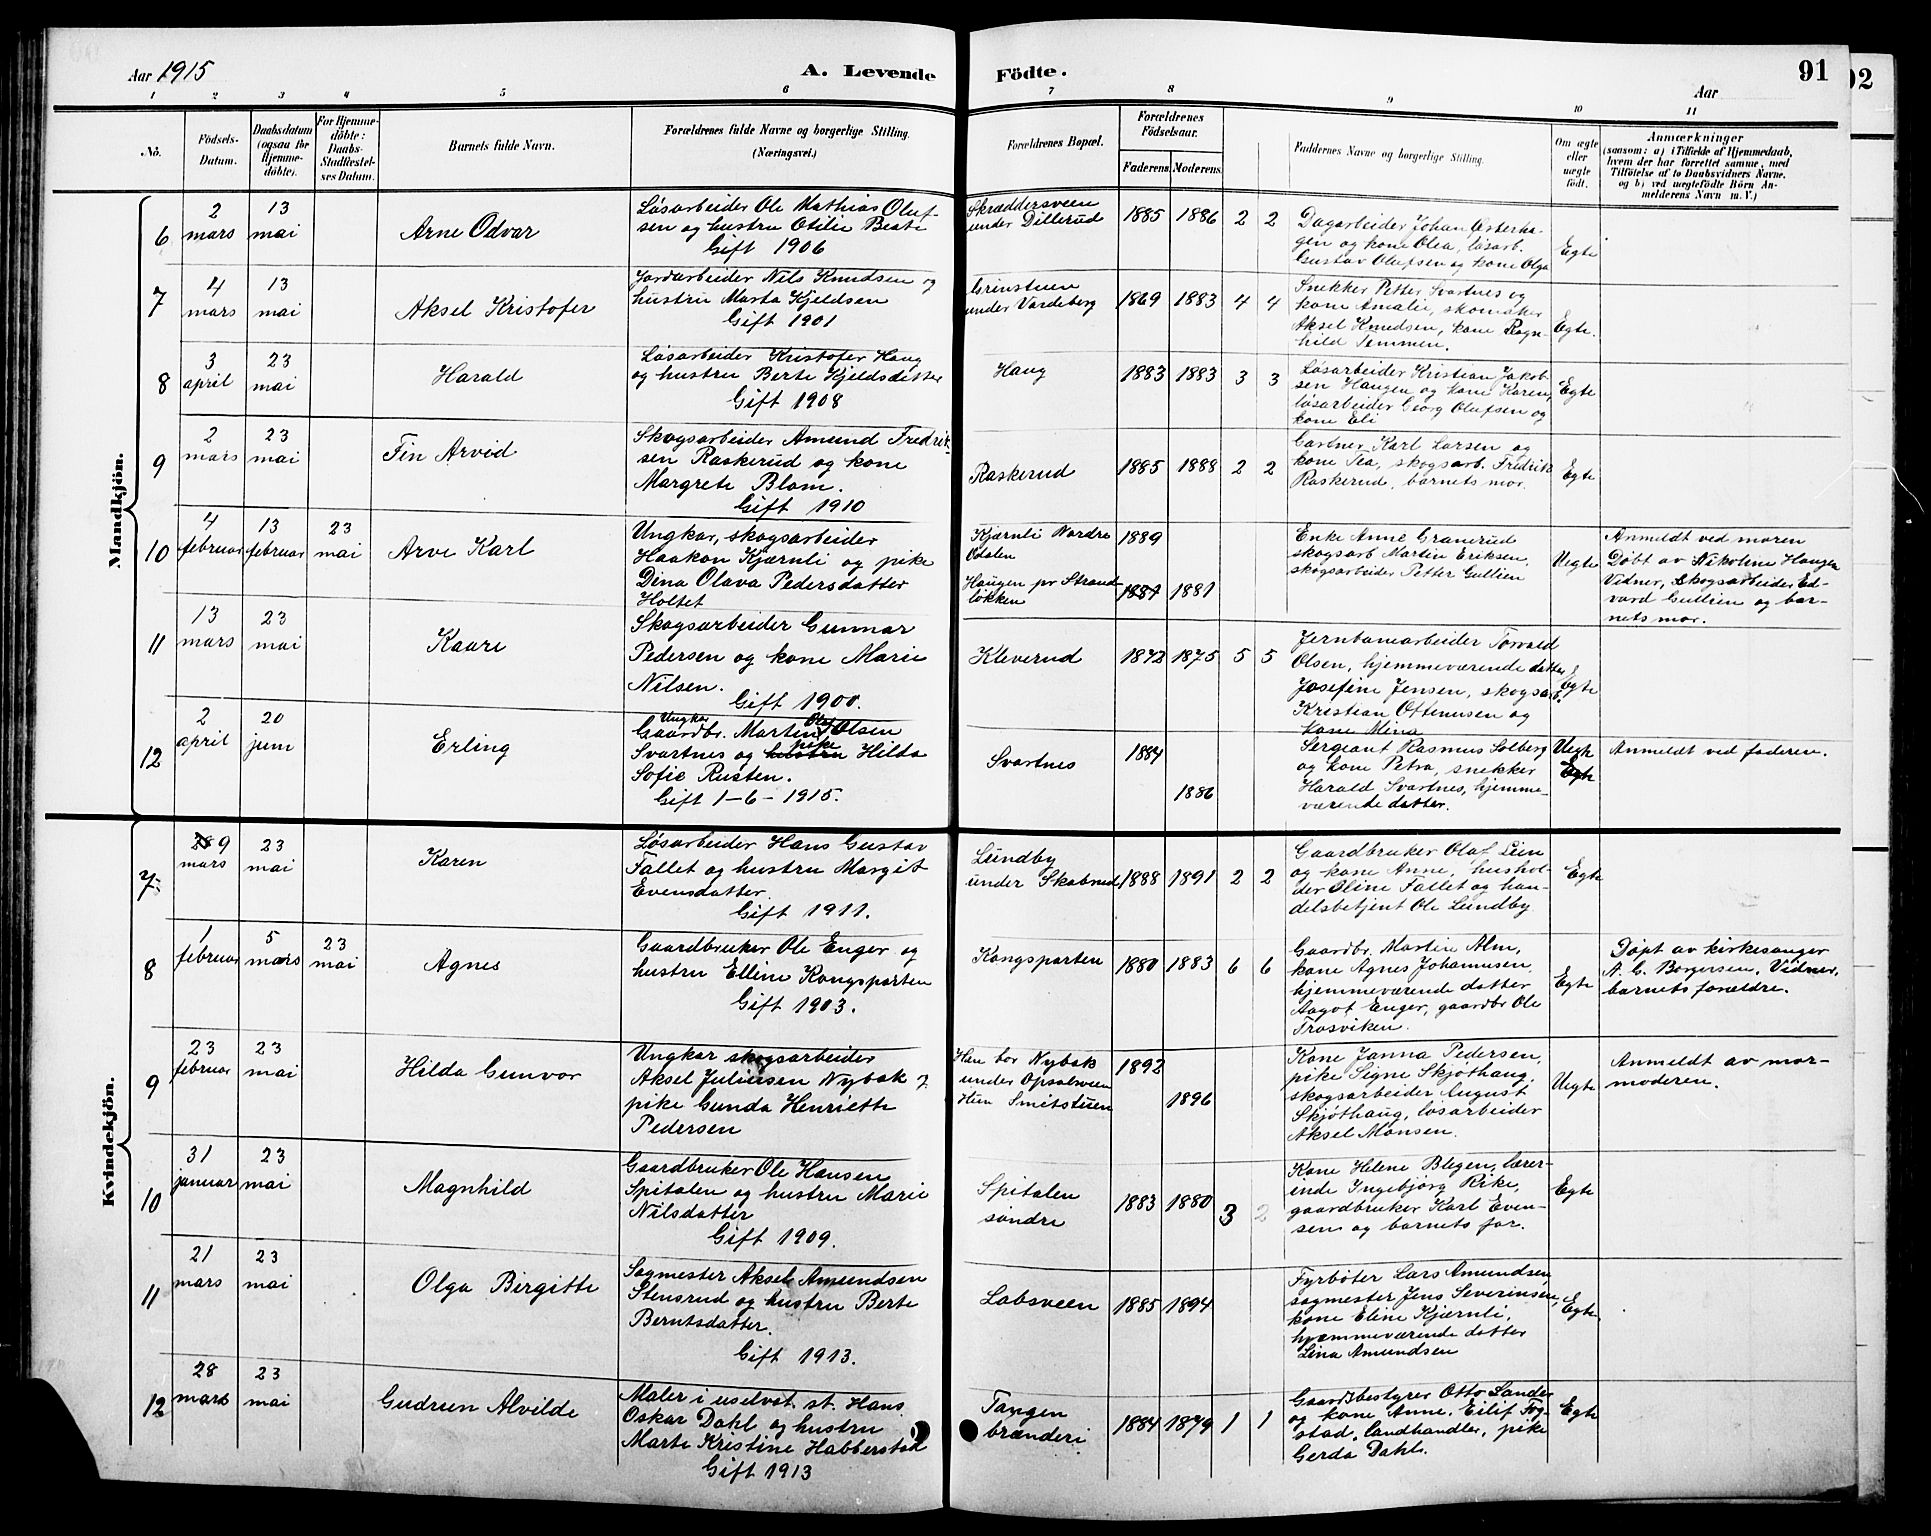 Aar 1915
A. Levende Födte.
91
92
Aar
1 2 3 4 5 6 7 8 9 10 11
No.
Födsels-
Datum.
Daabsdatum
(ogsaa for
Hjemme-
döbte).
For Hjemme-
döbte:
Daabs-
Stadfæstel-
ses Datum.
Barnets fulde Navn.
Forældrenes fulde Navne og borgerlige Stilling.
(Næringsvei.)
Forældrenes Bopæl.
Forældrenes
Födselsaar.
Faderens. Moderens.
Faddernes Navne og borgerlige Stilling.
Om ægte
eller
uægte
født.
Anmærkninger
(saasom: a) i Tilfælde af Hjemmedaab,
hvem der har forrettet samme, med
Tilföielse af to Daabsvidners Navne,
og b) ved uægtefödte Börn An-
melderens Navn m. V.)
Mandkjön.
6
2
mars
13
mai
Arne Odvar
Løsarbeider Ole Mathias Oluf-
sen og hustru Otilie Beate
Gift 1906
Skræddersveen
under Dillerud
1885 1886 2 2
Dagarbeider Johan Østerha-
gen og kone Olea, løsarb.
Gustav Olufsen og kone Olga
Egte
7
4
mars
13
mai
Aksel Kristofer
Jordarbeider Nils Knudsen og
hustru Marta Kjeldsen
Gift 1901
Grinstuen
under Vardeberg
1869 1883 4 4
Snekker Petter Svartnes og
kone Amalie, skomaker
Aksel Knudsen, kone Ragn-
hild Temmen.
Egte.
8
3
april
23
mai
Harald
Løsarbeider Kristofer Haug
og hustru Berte Kjeldsdatter
Gift 1908
Haug
1883 1883 3 3
Løsarbeider Kristian Jakob-
sen Haugen og kone Karen,
løsarbeider Georg Olufsen og
kone Eli
Egte
9
2
mars
23
mai
Fin Arvid
Skogsarbeider Amund Fredrik-
sen Raskerud og kone
Margrete Blom.
Gift 1910
Raskerud
1885 1888 2 2
Gartner Karl Larsen og
kone Tea, skogsarb. Fredrik
Raskerud, barnets mor.
Egte
10
4
februar
13
februar
23
mai
Arve Karl
Ungkar, skogsarbeider
Haakon Kjærnli og pike
Dina Olava Pedersdatter
Holtet
Kjærnli Nordre
Odalen
Haugen pr Strand-
løkken
1889
1887 1881
Enke Anne Granerud
skogsarb Martin Eriksen,
skogsarbeider Petter Gullien
Uegte
Anmeldt ved moren
Døbt av Nikoline Haugen
Vidner, Skogsarbeider Ed-
vard Gullien og bar-
nets mor.
11
13
mars
23
mai
Kaare
Skogsarbeider Gunnar
Pedersen og kone Marie
Nilsen.
Gift 1900.
Kleverud
1872 1875 5 5
Jernbanearbeider Torvald
Olsen, hjemmeværende datter
Josefine Jensen, skogsarb.
Kristian Ottenusen og
kone Mina
Egte
12
2
april
20
juni
Erling
Ungkar Olaf
Gaardbr. Martin Olsen
pike
Svartnes og hustru Hilda
Sofie Rusten.
Gift 1-6-1915.
Svartnes
1884
1886
Sergeant Rasmus Solberg
og kone Petra, snekker
Harald Svartnes, hjemme-
værende datter.
Uegte
Egte
Anmeldt ved faderen.
Kvindekjön.
7
28 9
mars
23
mai
Karen
Løsarbeider Hans Gustav
Fallet og hustru Margit
Evensdatter
Gift 1911.
Lundby
under Skabrud
1888 1891 2 2
Gaardbruker Olaf Lien
og kone Anne, hushol-
der Oline Fallet og han-
delsbetjent Ole Lundby.
Egte
8
1
februar
5
mars
23
mai
Agnes
Gaardbruker Ole Enger og
hustru Elline Kongsparten
Gift 1903.
Kongsparten
1880 1883 6 6
Gaardbr. Martin Alm,
kone Agnes Johannesen,
hjemmeværende datter
Aagot Enger, gaardbr Ole
Trosviken.
Egte
Døpt av kirkesanger
A. C. Borgersen. Vidner,
barnets forældre.
9
23
februar
23
mai
Hilda Gunvor
Ungkar skogsarbeider
Aksel Juliussen Nybak og
pike Gunda Henriette
Pedersen
Han bor Nybak
under Opsalsveen
Hun Smitstuen
1892
1896
Kone Janna Pedersen,
pike Signe Skjøthaug,
skogsarbeider August
Skjøthaug, løsarbeider
Aksel Monsen.
Uegte
Anmeldt av mor-
moderen.
10
31
januar
23
mai
Magnhild
Gaardbruker Ole Hansen
Spitalen og hustru Marie
Nilsdatter
Gift 1909.
Spitalen
søndre
1883 1880 3 2
Kone Helene Blegen, lærer-
inde Ingebjørg Rike,
gaardbruker Karl Even-
sen og barnets far.
Egte
11
21
mars
23
mai
Olga Birgitte
Sagmester Aksel Amundsen
Stensrud og hustru Berte
Berntsdatter.
Gift 1913.
Labsveen
1885 1894
Fyrbøter Lars Amundsen,
sagmester Jens Severinsen,
kone Eline Kjærnli,
hjemmeværende datter
Lina Amundsen
Egte.
12
28
mars
23
mai
Gudrun Alvilde
Maler i uselvst. st. Hans
Oskar Dahl og hustru
Marte Kristine Habberstad
Gift 1913
Tangen
brænderi
1884 1879 1 1
Gaardsbestyrer Otto Sander
og kone Anne. Eilif Fog-
stad, landhandler, pike
Gerda Dahl.
Egte